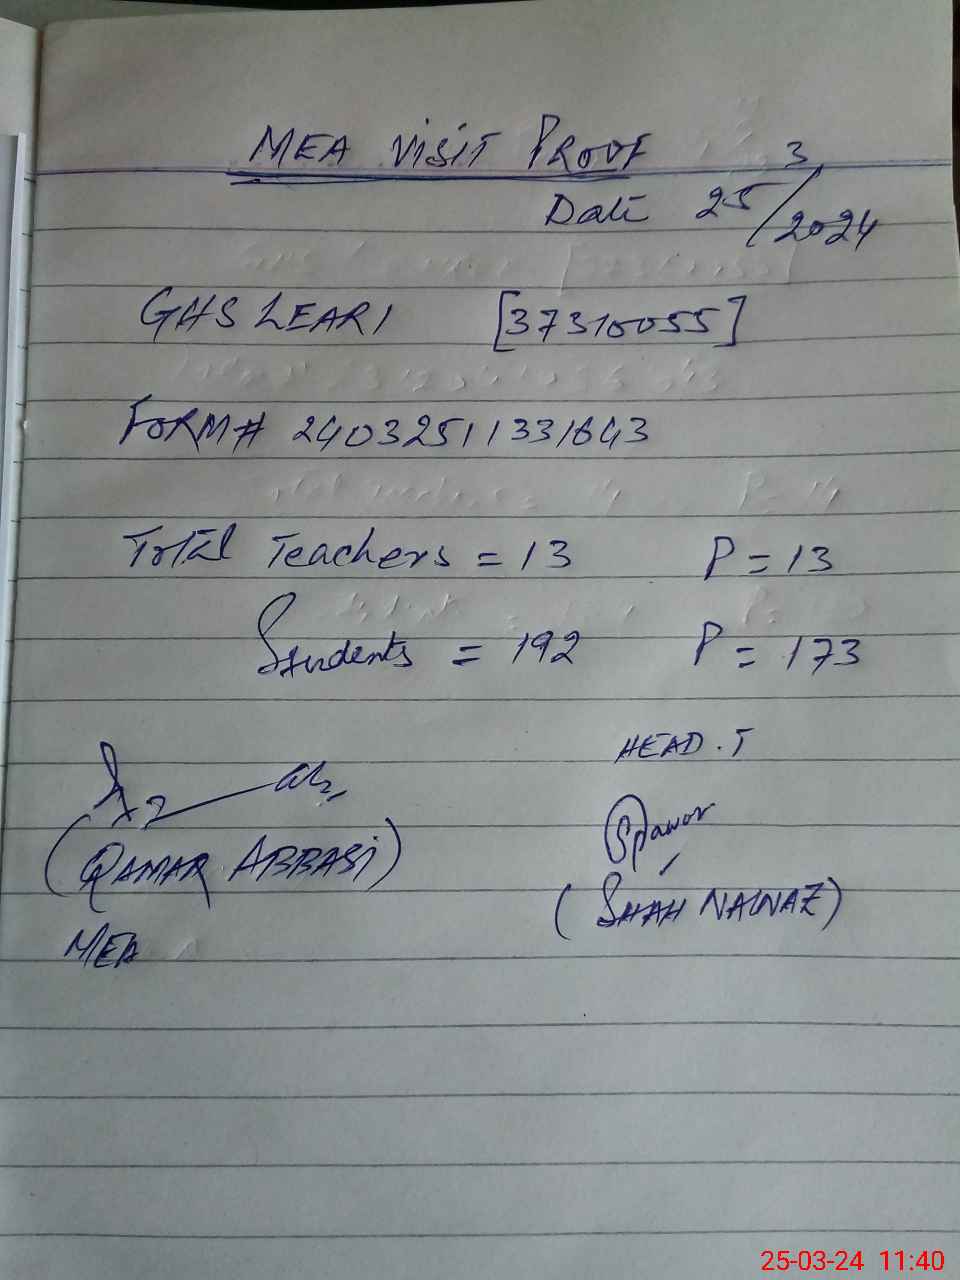 MEA VISIT PROOF
Date 25/3/2024
GHS LEARI [37310055]
FORM# 24032511331643
Total Teachers = 13 P = 13
Students = 192 P = 173
HEAD.T
(QAMAR ABBASI)
(SHAH NALNAZ)
MEA
25-03-24 11:40